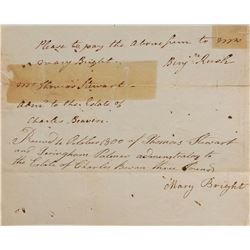 Please to pay the above sum to Mrs
Mary Bright
Benjn Rush
Mr Thomas Stewart
Admr to the Estate of
Charles Bevan
Received October 1800 of Thomas Stewart
and Palmer administrators to
the Estate of Charles Bevan three Pounds
Mary Bright